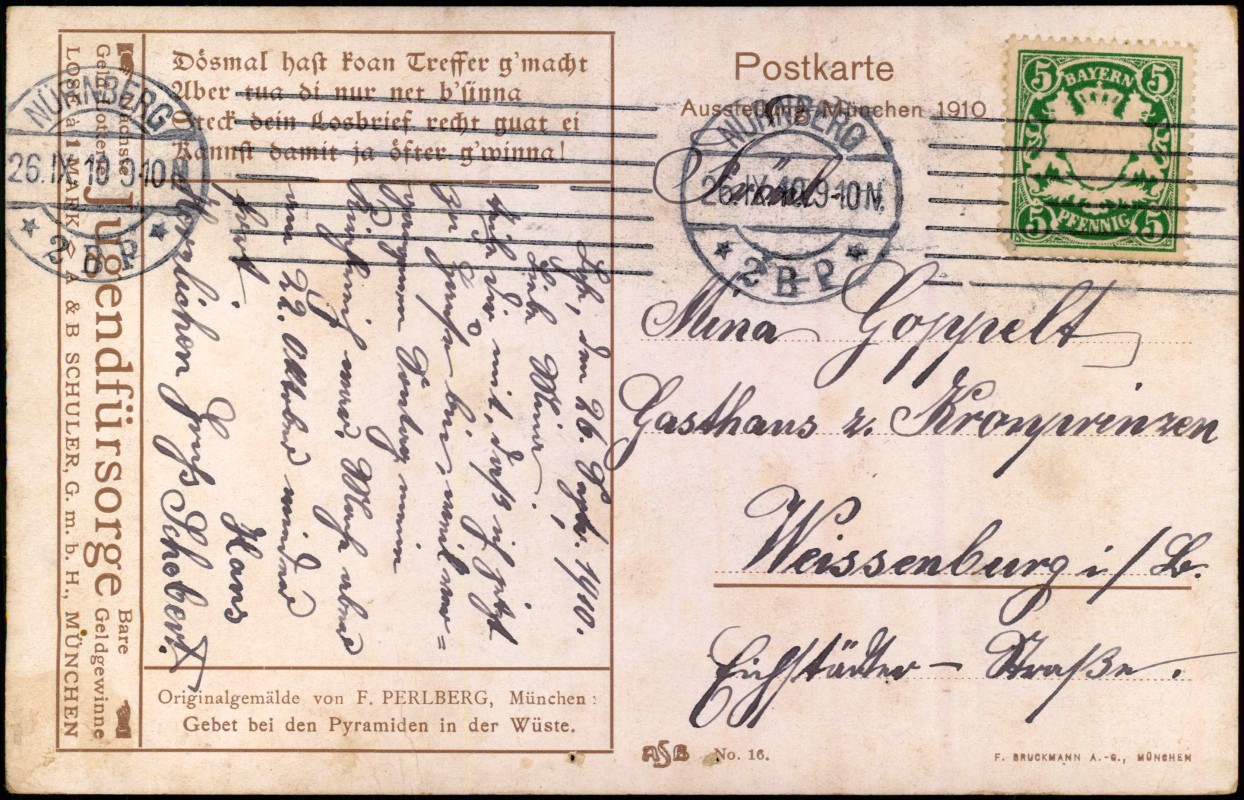 Postkarte
Ausstellung München 1910
BAYERN
5 5
5 5
PFENNIG
NÜRNBERG
26.IX.10.9-10N.
2 B P
NÜRNBERG
26.IX.10 9-10N.
2 B P
Dösmal hast koan Treffer g'macht
Aber tua di nur net b'sinna
Steck dein Losbrief recht guat ei
Kannst damit ja öfter g'winna!
Nächste
Geld-Lotterie
Jugendfürsorge
Bare
Geldgewinne
LOSE à 1 MARK A & B SCHULER, G. m. b. H., MÜNCHEN
den 26. Septbr. 1910.
Liebe Mina!
Teile Dir mit, daß ich jetzt
zu Hause bin, weil mor=
gen
nein
am 22. Oktober wieder
fort.
Herzlichen Gruß
Hans
Schobert.
Fräul.
Mina Goppelt
Gasthaus z. Kronprinzen
Weissenburg i/B.
Eichstädter-Straße.
Originalgemälde von F. PERLBERG, München:
Gebet bei den Pyramiden in der Wüste.
ASB No. 16.
F. BRUCKMANN A.-G., MÜNCHEN